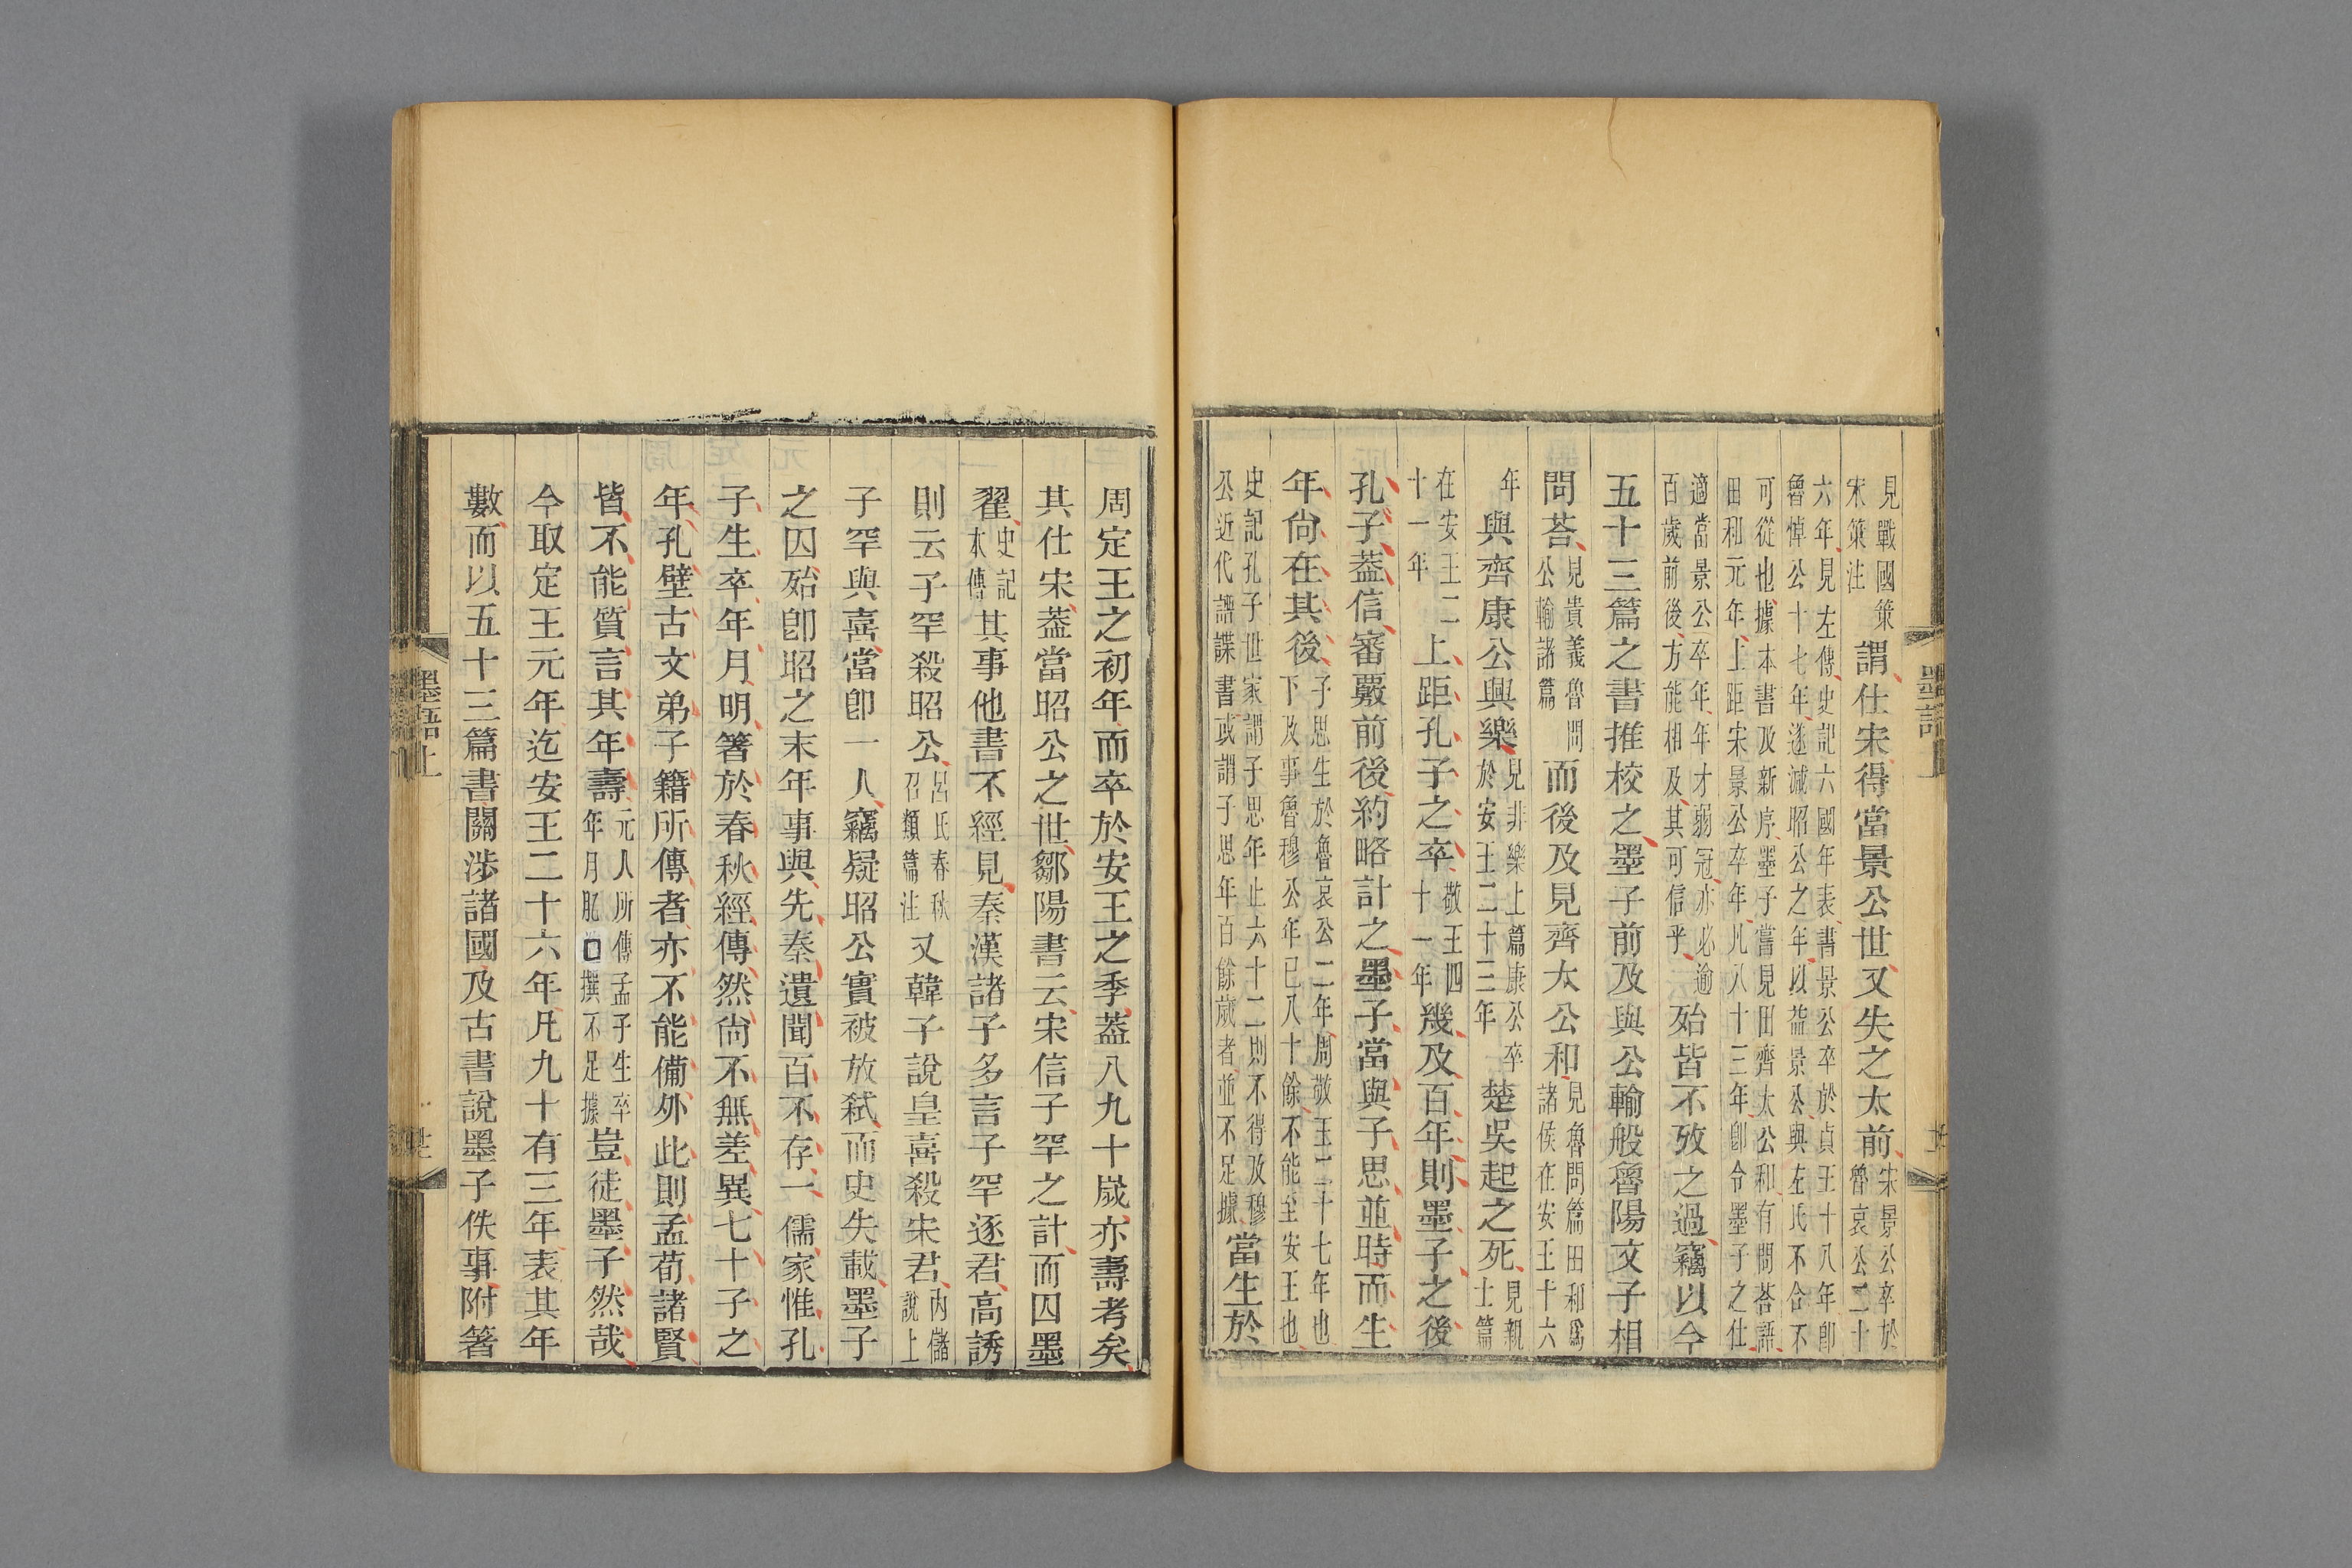 見戰國策宋策注謂仕宋得當景公世又失之太前宋景公卒於魯哀公二十
六年見左傳史記六國年表書景公卒於貞王十八年卽魯悼公十七年遂減昭公之年以益景公與左氏不合不
可從也據本書及新序墨子嘗見田齊太公和有問荅語田和元年上距宋景公卒年凡八十三年卽令墨子之仕
適當景公卒年年才弱冠亦必逾百歲前後方能相及其可信乎殆皆不攷之過竊以今
五十三篇之書推校之墨子前及與公輸般魯陽文子相
問荅見貴義魯問公輸諸篇而後及見齊太公和見魯問篇田和爲諸侯在安王十六
年與齊康公興樂見非樂上篇康公卒於安王二十三年楚吳起之死見親士篇
在安王二十一年上距孔子之卒敬王四十一年幾及百年則墨子之後
孔子葢信審覈前後約略計之墨子當與子思並時而生
年尙在其後子思生於魯哀公二年周敬王二十七年也下及事魯穆公年已八十餘不能至安王也
史記孔子世家謂子思年止六十二則不得及穆公近代譜諜書或謂子思年百餘歲者並不足據當生於
墨語上
周定王之初年而卒於安王之季葢八九十歲亦壽考矣
其仕宋葢當昭公之世鄒陽書云宋信子罕之計而囚墨
翟史記本傳其事他書不經見秦漢諸子多言子罕逐君高誘
則云子罕殺昭公呂氏春秋召類篇注又韓子說皇喜殺宋君內儲說上
子罕與喜當卽一人竊疑昭公實被放弒而史失載墨子
之囚殆卽昭之末年事與先秦遺聞百不存一儒家惟孔
子生卒年月明箸於春秋經傳然尙不無差異七十子之
年孔壁古文弟子籍所傳者亦不能備外此則孟荀諸賢
皆不能質言其年壽元人所傳孟子生卒年月肊□撰不足據豈徒墨子然哉
今取定王元年迄安王二十六年凡九十有三年表其年
數而以五十三篇書關涉諸國及古書說墨子佚事附箸
墨語上